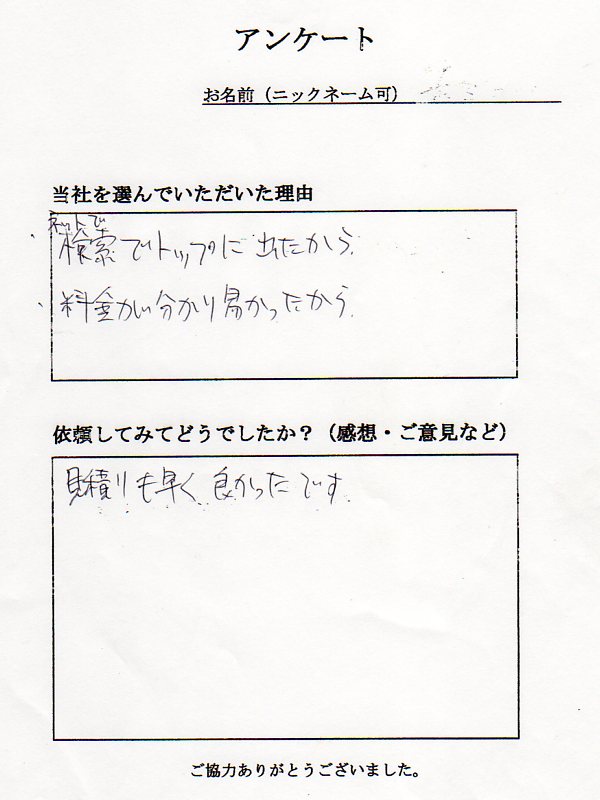 アンケート
お名前（ニックネーム可）
当社を選んでいただいた理由
ネットで
・検索でトップに出たから.
・料金がい分かり易かったから.
依頼してみてどうでしたか？（感想・ご意見など）
見積りも早く、良かったです.
ご協力ありがとうございました。